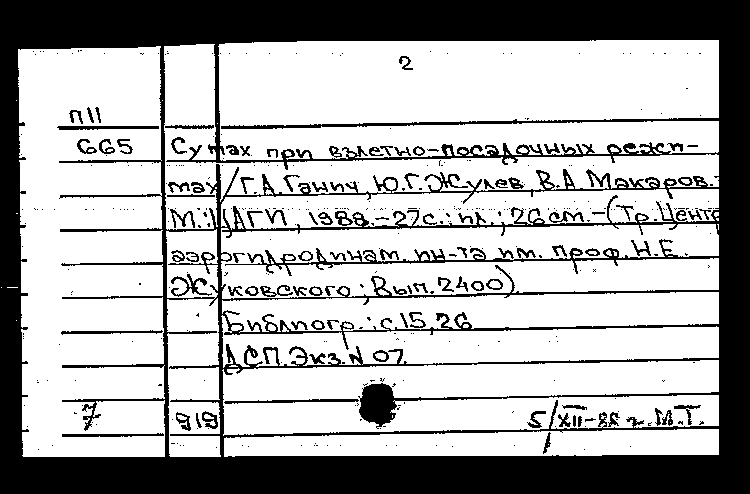 2
П11
665 Су max при взлетно-посадочных режи-
мах / Г.А. Ганич, Ю.Г. Жулев, В.А. Макаров. -
М.: ЦАГИ, 1988. - 27с.: ил.; 26см. - (Тр. Центр
аэрогидродинам. ин-та им. проф. Н.Е.
Жуковского; Вып. 2400).
Библиогр.: с. 15, 26
ДСП. Экз. N 07
7 919 5/XII-88 г. М.Т.